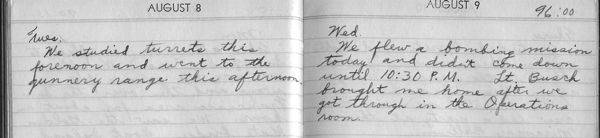 AUGUST 8
Tues.
We studied turrets this
forenoon and went to the
gunnery range this afternoon.
AUGUST 9
96:00
Wed.
We flew a bombing mission
today and didn't come down
until 10:30 P.M. Lt. Busch
brought me home after we
got through in the Operations
room.